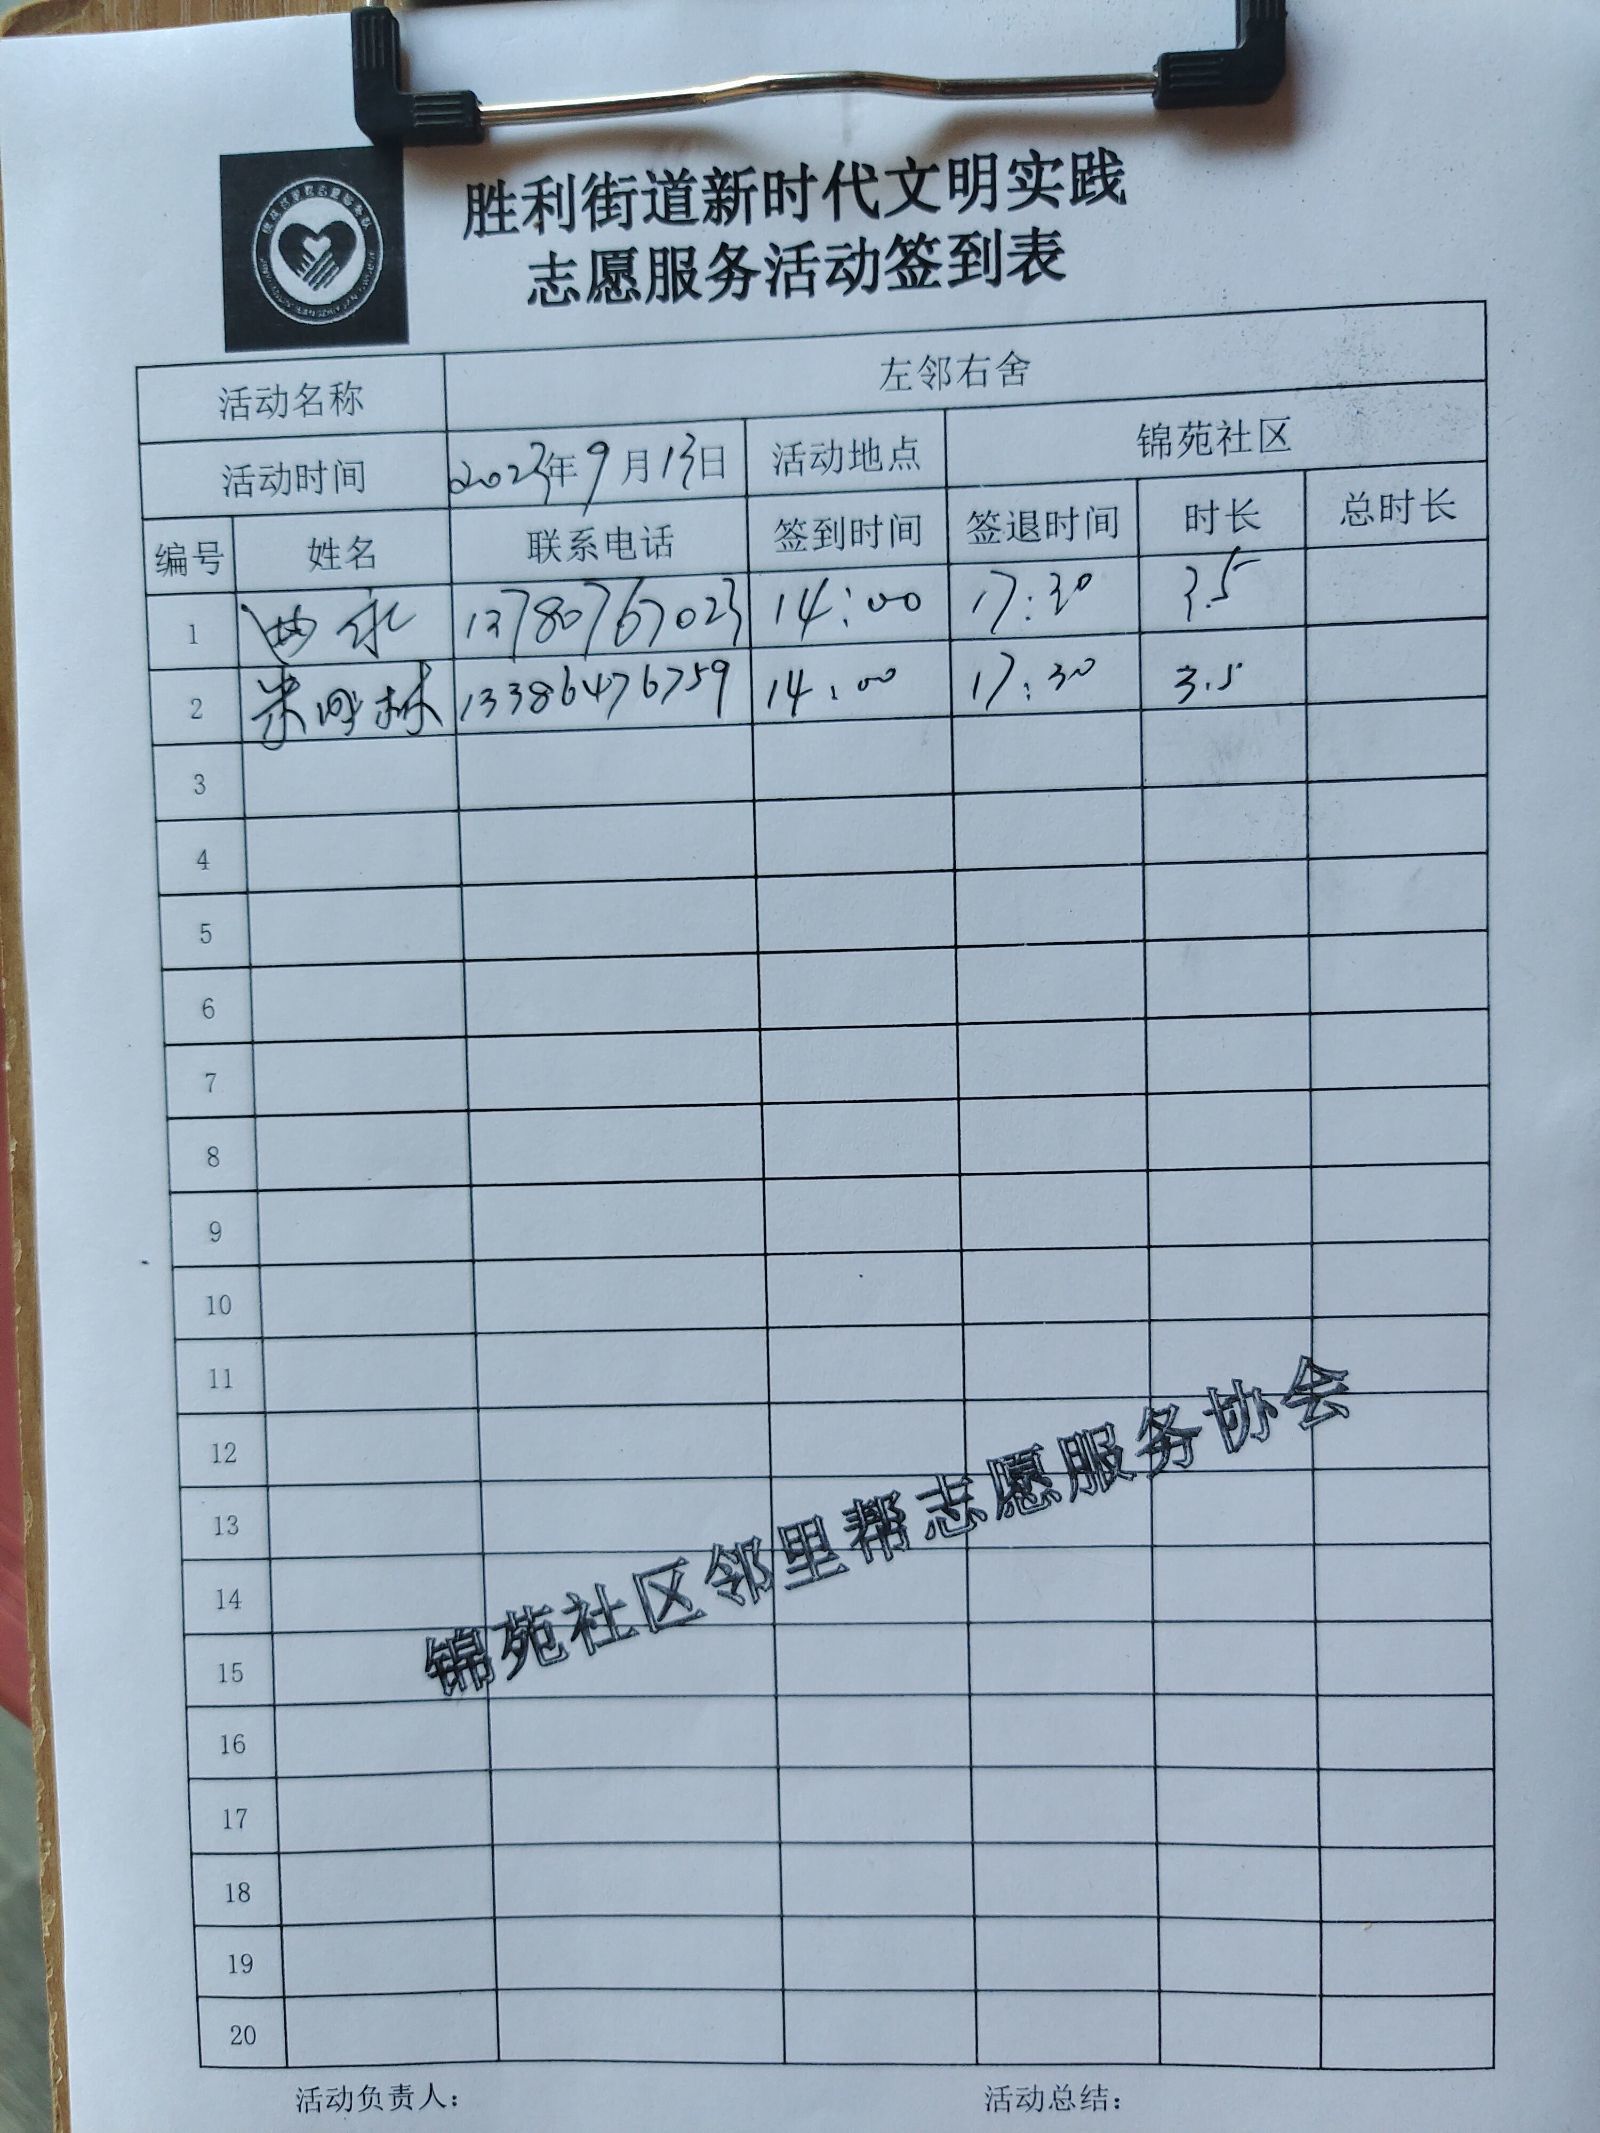 胜利街道新时代文明实践
志愿服务活动签到表
活动名称 左邻右舍
活动时间 2023年9月13日 活动地点 锦苑社区
编号 姓名 联系电话 签到时间 签退时间 时长 总时长
1 13780767023 14:00 17:30 3.5
2 林 13386476759 14:00 17:30 3.5
3
4
5
6
7
8
9
10
11
12
13
14
15
16
17
18
19
20
锦苑社区邻里帮志愿服务协会
活动负责人: 活动总结: